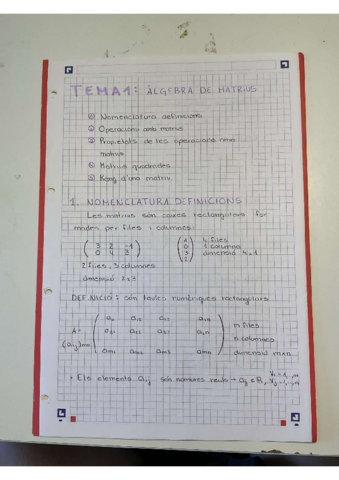 TEMA 1: ÀLGEBRA DE MATRIUS
① Nomenclatura definicions
② Operacions amb matrius
③ Propietats de les operacions amb
matrius
④ Matrius quadrades
⑤ Rang d'una matriu
1. NOMENCLATURA DEFINICIONS
Les matrius són caixes rectangulars for
mades per files i columnes:
( 3 2 -1 ) ( 1 ) 4 files
( 0 4 3 ) ( 0 ) 1 columna
( 3 ) dimensió 4x1
( 2 )
2 files, 3 columnes
dimensió 2x3
DEFINICIÓ: són taules numèriques rectangulars
m files
A=
n columnes
(aij)mn
am1 am2 am3 amn
dimensió mxn
• Els elements aij són nombres reals → aij ∈ R,